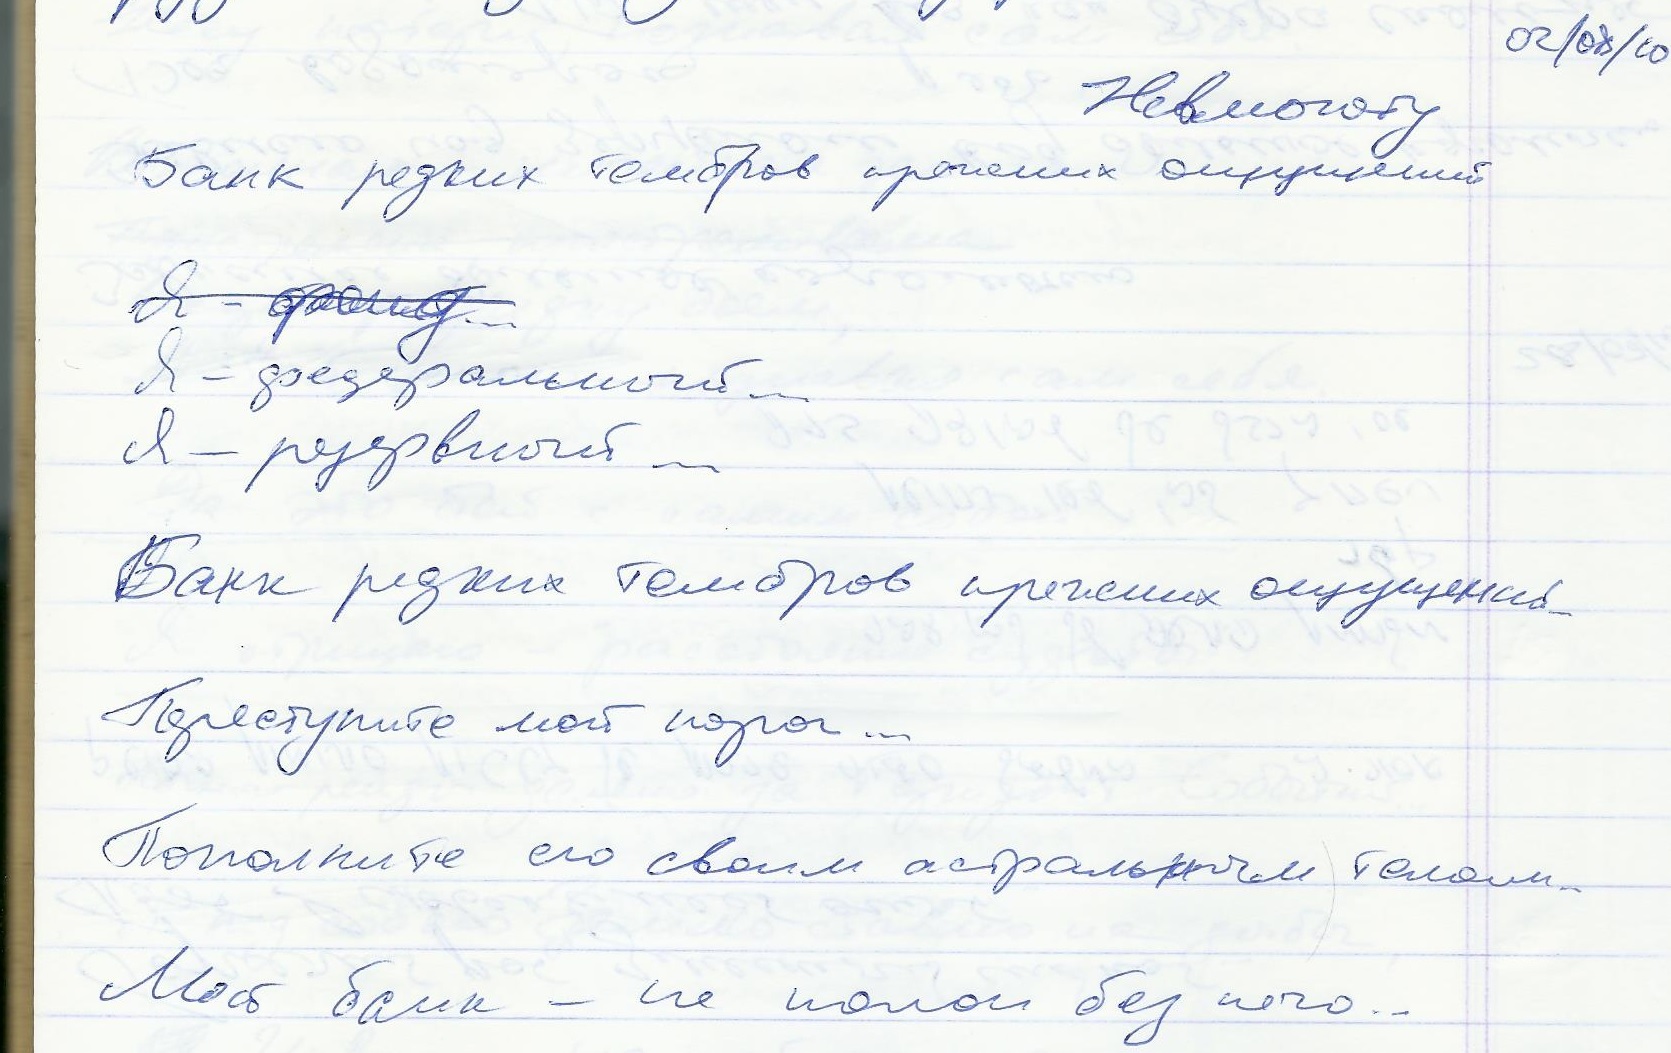 02/08/10
Невмоготу
Банк редких тембров прежних ощущений
Я –
Я – федеральный...
Я – резервный...
Банк редких тембров прежних ощущений...
Преступите мой порог...
Пополните его своим астральным телом...
Мой банк – не полон без него...